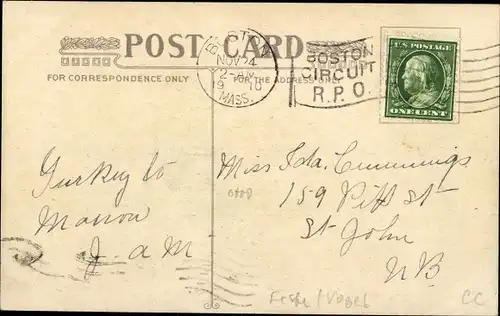 POST CARD
FOR CORRESPONDENCE ONLY
FOR THE ADDRESS ONLY
BOSTON
NOV 24
2-AM
19 10
MASS.
BOSTON
CIRCUIT
R.P.O.
U.S. POSTAGE
ONE CENT
Turkey to
J. a M
Miss Ida Cummings
159 Pitt St
St John
NB
CC